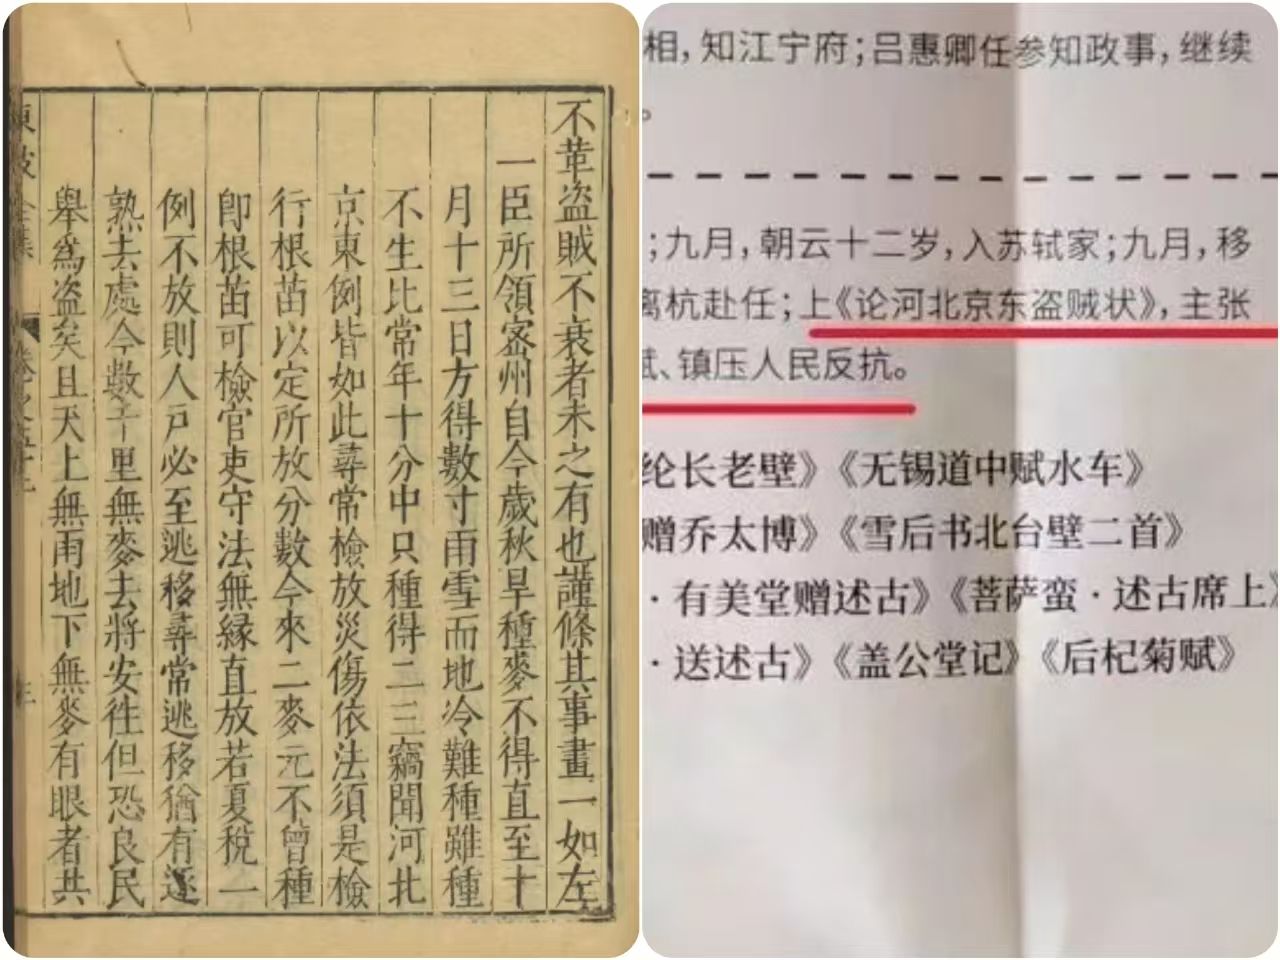 不革盗賊不衰者未之有也謹條其事畫一如左
一臣所領密州自今歲秋旱種麥不得直至十
月十三日方得數寸雨雪而地冷難種雖種
不生比常年十分中只種得二三竊聞河北
京東例皆如此尋常檢放災傷依法須是檢
行根苗以定所放分數今來二麥元不曾種
即根苗可檢官吏守法無緣直放若夏稅一
例不放則人戶必至逃移尋常逃移猶有逐
熟去處今數千里無麥去將安往但恐良民
舉為盗矣且天上無雨地下無麥有眼者共
相，知江宁府；吕惠卿任参知政事，继续
。
；九月，朝云十二岁，入苏轼家；九月，移
离杭赴任；上《论河北京东盗贼状》，主张
、镇压人民反抗。
纶长老壁》《无锡道中赋水车》
赠乔太博》《雪后书北台壁二首》
·有美堂赠述古》《菩萨蛮·述古席上》
·送述古》《盖公堂记》《后杞菊赋》